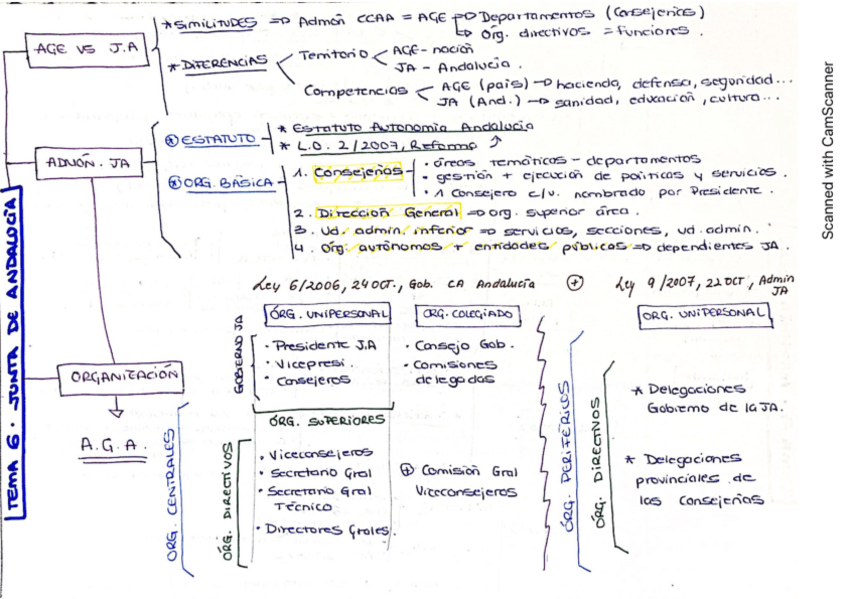 TEMA 6. JUNTA DE ANDALUCÍA
AGE VS J.A
* SIMILITUDES => Admón CCAA = AGE => Departamentos (Consejerías)
Órg. directivos = funciones.
* DIFERENCIAS
Territorio
AGE - nación
JA - Andalucía.
Competencias
AGE (país) -> hacienda, defensa, seguridad...
JA (And.) -> sanidad, educación, cultura...
ADMÓN. JA
* ESTATUTO
* Estatuto Autonomía Andalucía
* L.O. 2/2007, Reforma ↑
* ORG. BÁSICA
1. Consejerías
· áreas temáticas - departamentos
· gestión + ejecución de políticas y servicios.
· 1 Consejero c/u. nombrado por Presidente.
2. Dirección General => org. superior área.
3. Ud. admin. inferior => servicios, secciones, ud. admin.
4. Org. autónomos + entidades públicas => dependientes JA.
ORGANIZACIÓN
A.G.A.
Ley 6/2006, 24 OCT., Gob. CA Andalucía
+
Ley 9/2007, 22 OCT, Admin JA
ÓRG. CENTRALES
GOBIERNO JA
ÓRG. UNIPERSONAL
ORG. COLEGIADO
· Presidente J.A
· Vicepresi.
· Consejeros
· Consejo Gob.
· Comisiones
delegadas
ÓRG. SUPERIORES
ÓRG. DIRECTIVOS
· Viceconsejeros
· Secretario Gral
· Secretario Gral
Técnico
· Directores Grales.
+ Comisión Gral
Viceconsejeros
ÓRG. PERIFÉRICOS
ÓRG. DIRECTIVOS
ORG. UNIPERSONAL
* Delegaciones
Gobierno de la JA.
* Delegaciones
provinciales de
las Consejerías
Scanned with CamScanner